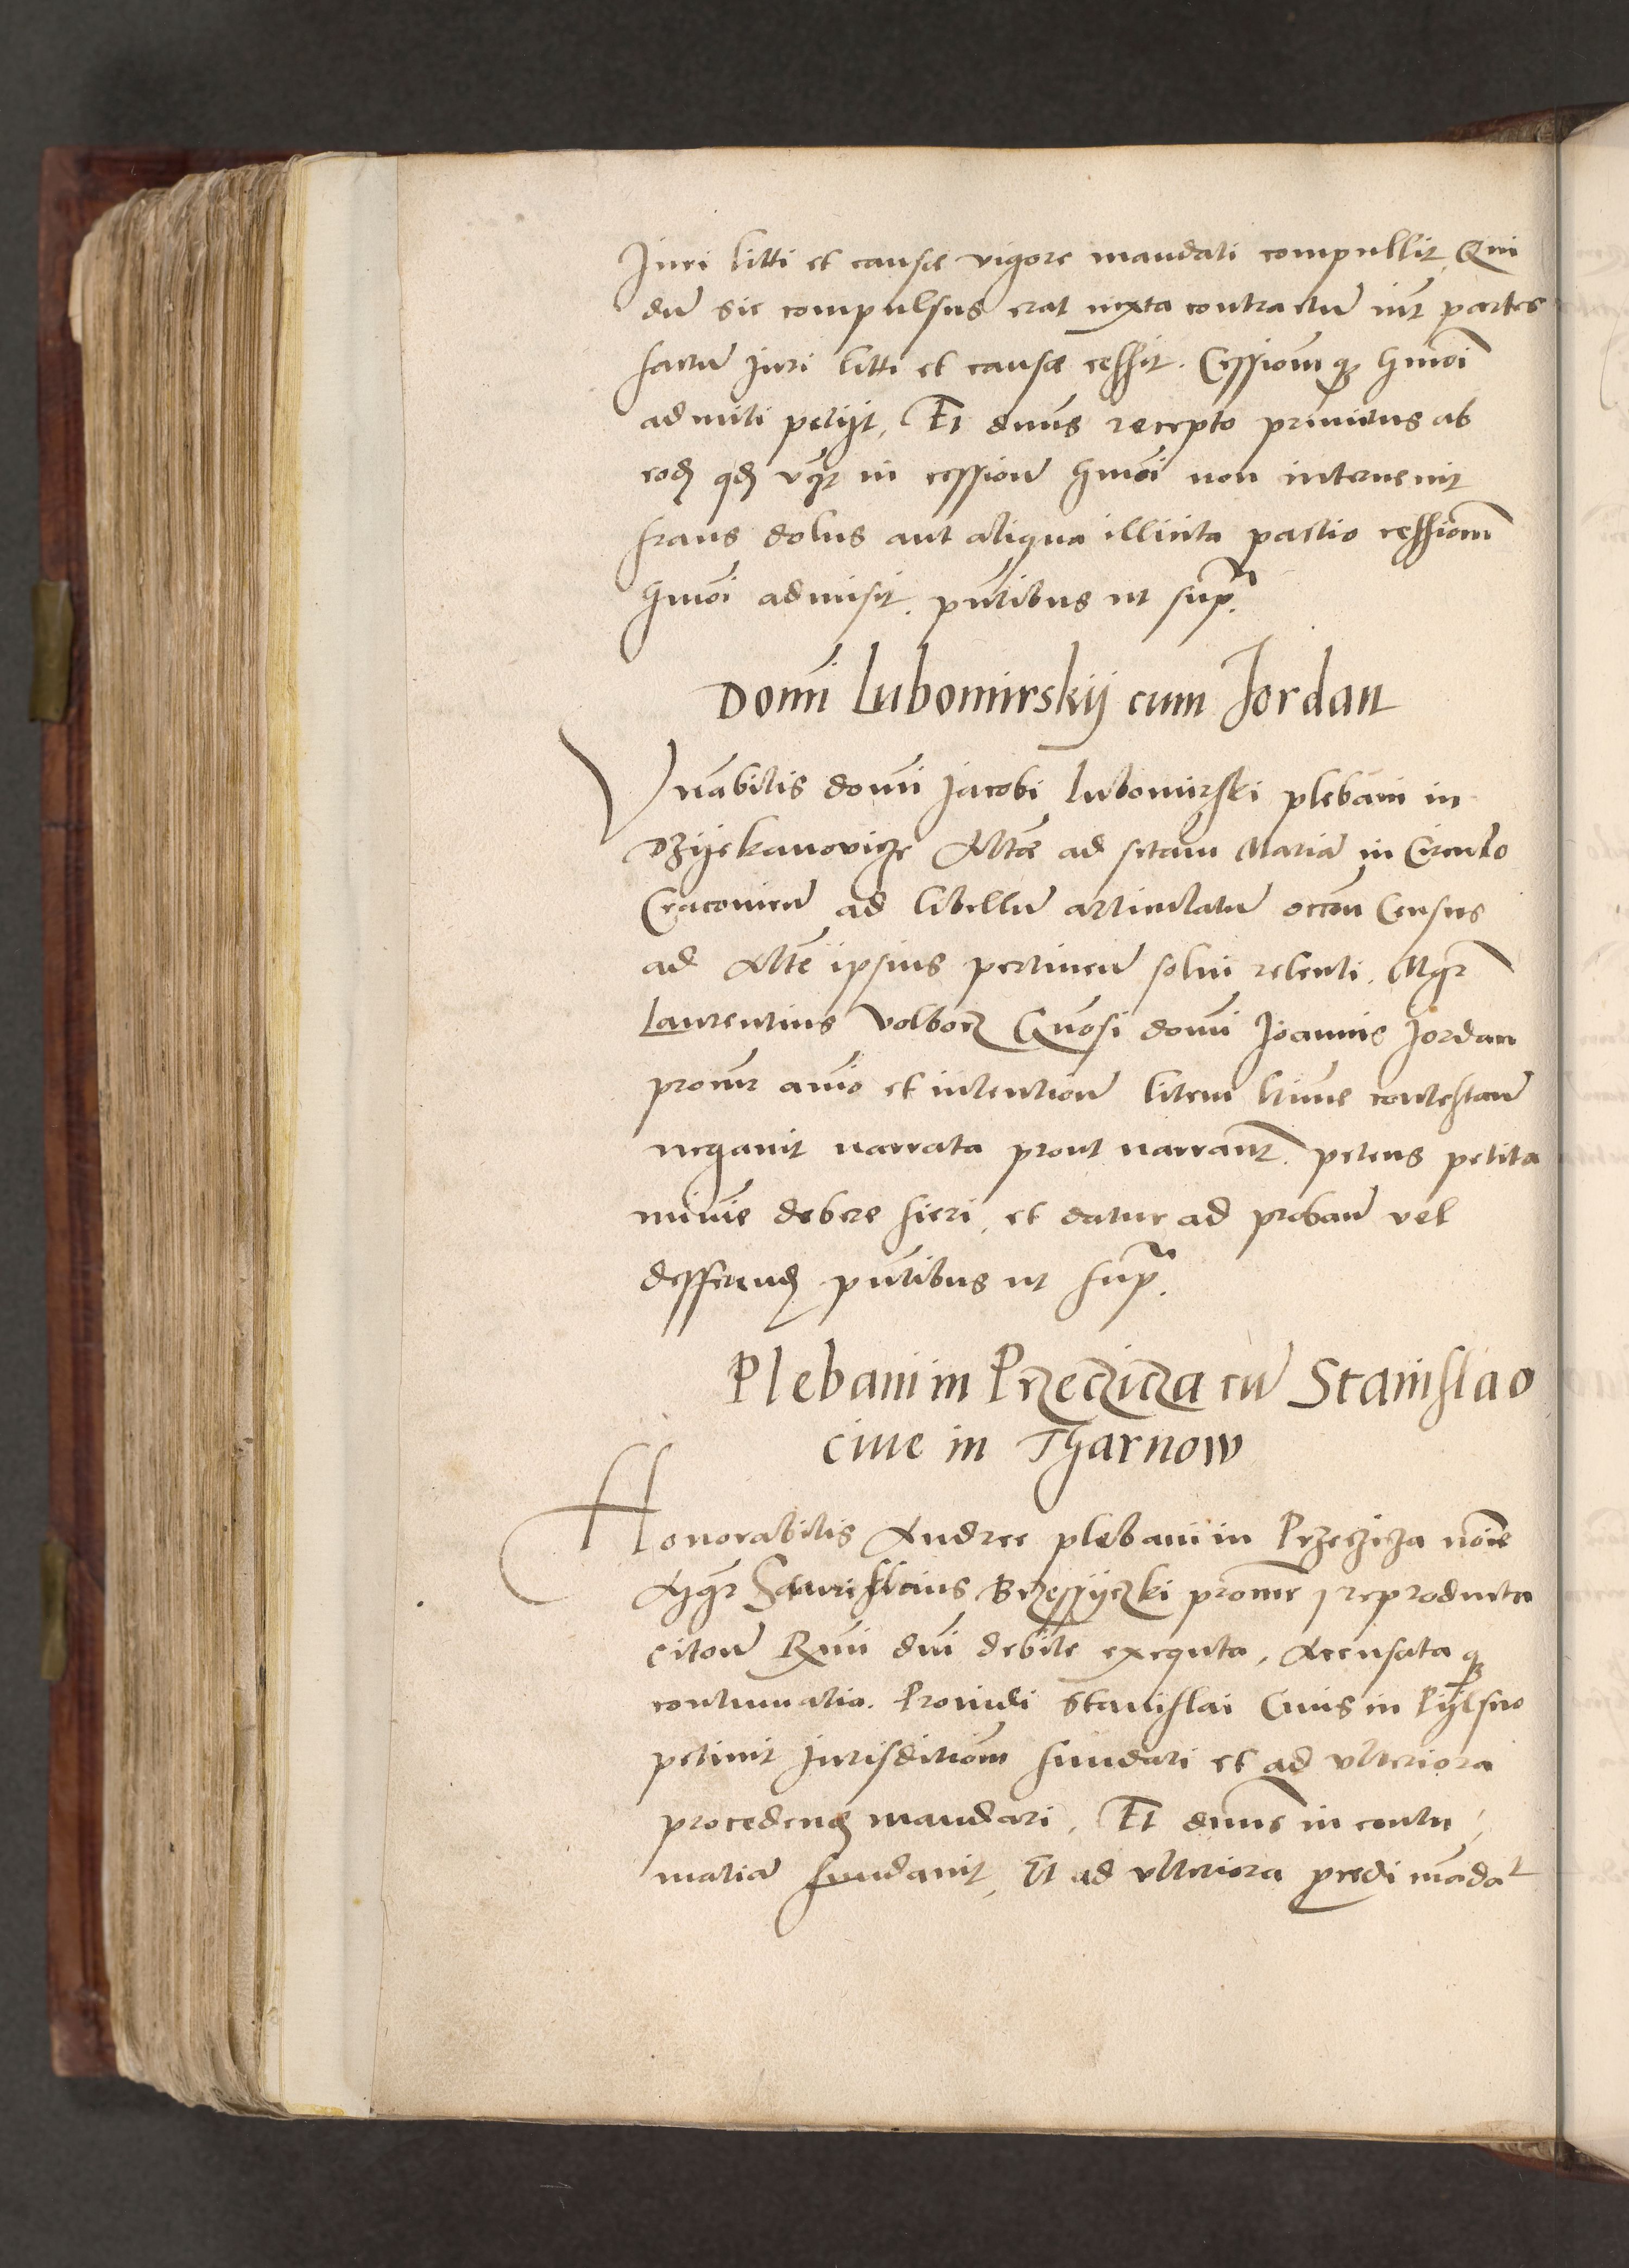 Juri litti et causæ vigore mandati compullit, Qui
dũ sic compulsus erat iuxta contractũ int̃ partes
factũ Juri litti et causæ cessit. Cessionẽq3 hmõi
admitti petijt, Et dnũs recepto primitus ab
eod̃ qd̃ in cessionẽ hmõi non interuenit
fraus dolus aut aliqua illicita pactio cessionẽ
hmõi admisit. pñtibus ut supra.
Domĩ Lubomirskij cum Jordan
Vñabilis domĩ Jacobi Lubomirski plebani in
Dzijekanovicze Altæ ad sctam Mariã in Circulo
Cracovieñ ad libellũ articulatũ occõe Census
ad Altẽ ipsius pertineñ solui retenti. Mgr̃
Laurentius Volborz Gñosi domĩ Joannis Jordan
procur aĩo et intentionẽ litem hmõi contestañ
negauit narrata prout narrant̃. petens petita
minĩe debere fieri, et datur ad probañ vel
deffereñd pñtibus ut supra.
Plebani in Przeczicza cũ Stanislao
ciue in Tharnow
Honorabilis Andree plebani in Przeczicza noĩe
Mgr̃ Stanislaus Brzessyczki procur reproducta
citoñe Rm̃i dni debite exequta, Accusataq3
contumatia. Prouidi Stanislai Ciuis in Pijlsno
petiuit Jurisditionẽ fundari et ad ulteriora
procedend̃ mandari, Et dnũs in contu,
matiã fundauit, Et ad ulteriora procedi mãdat